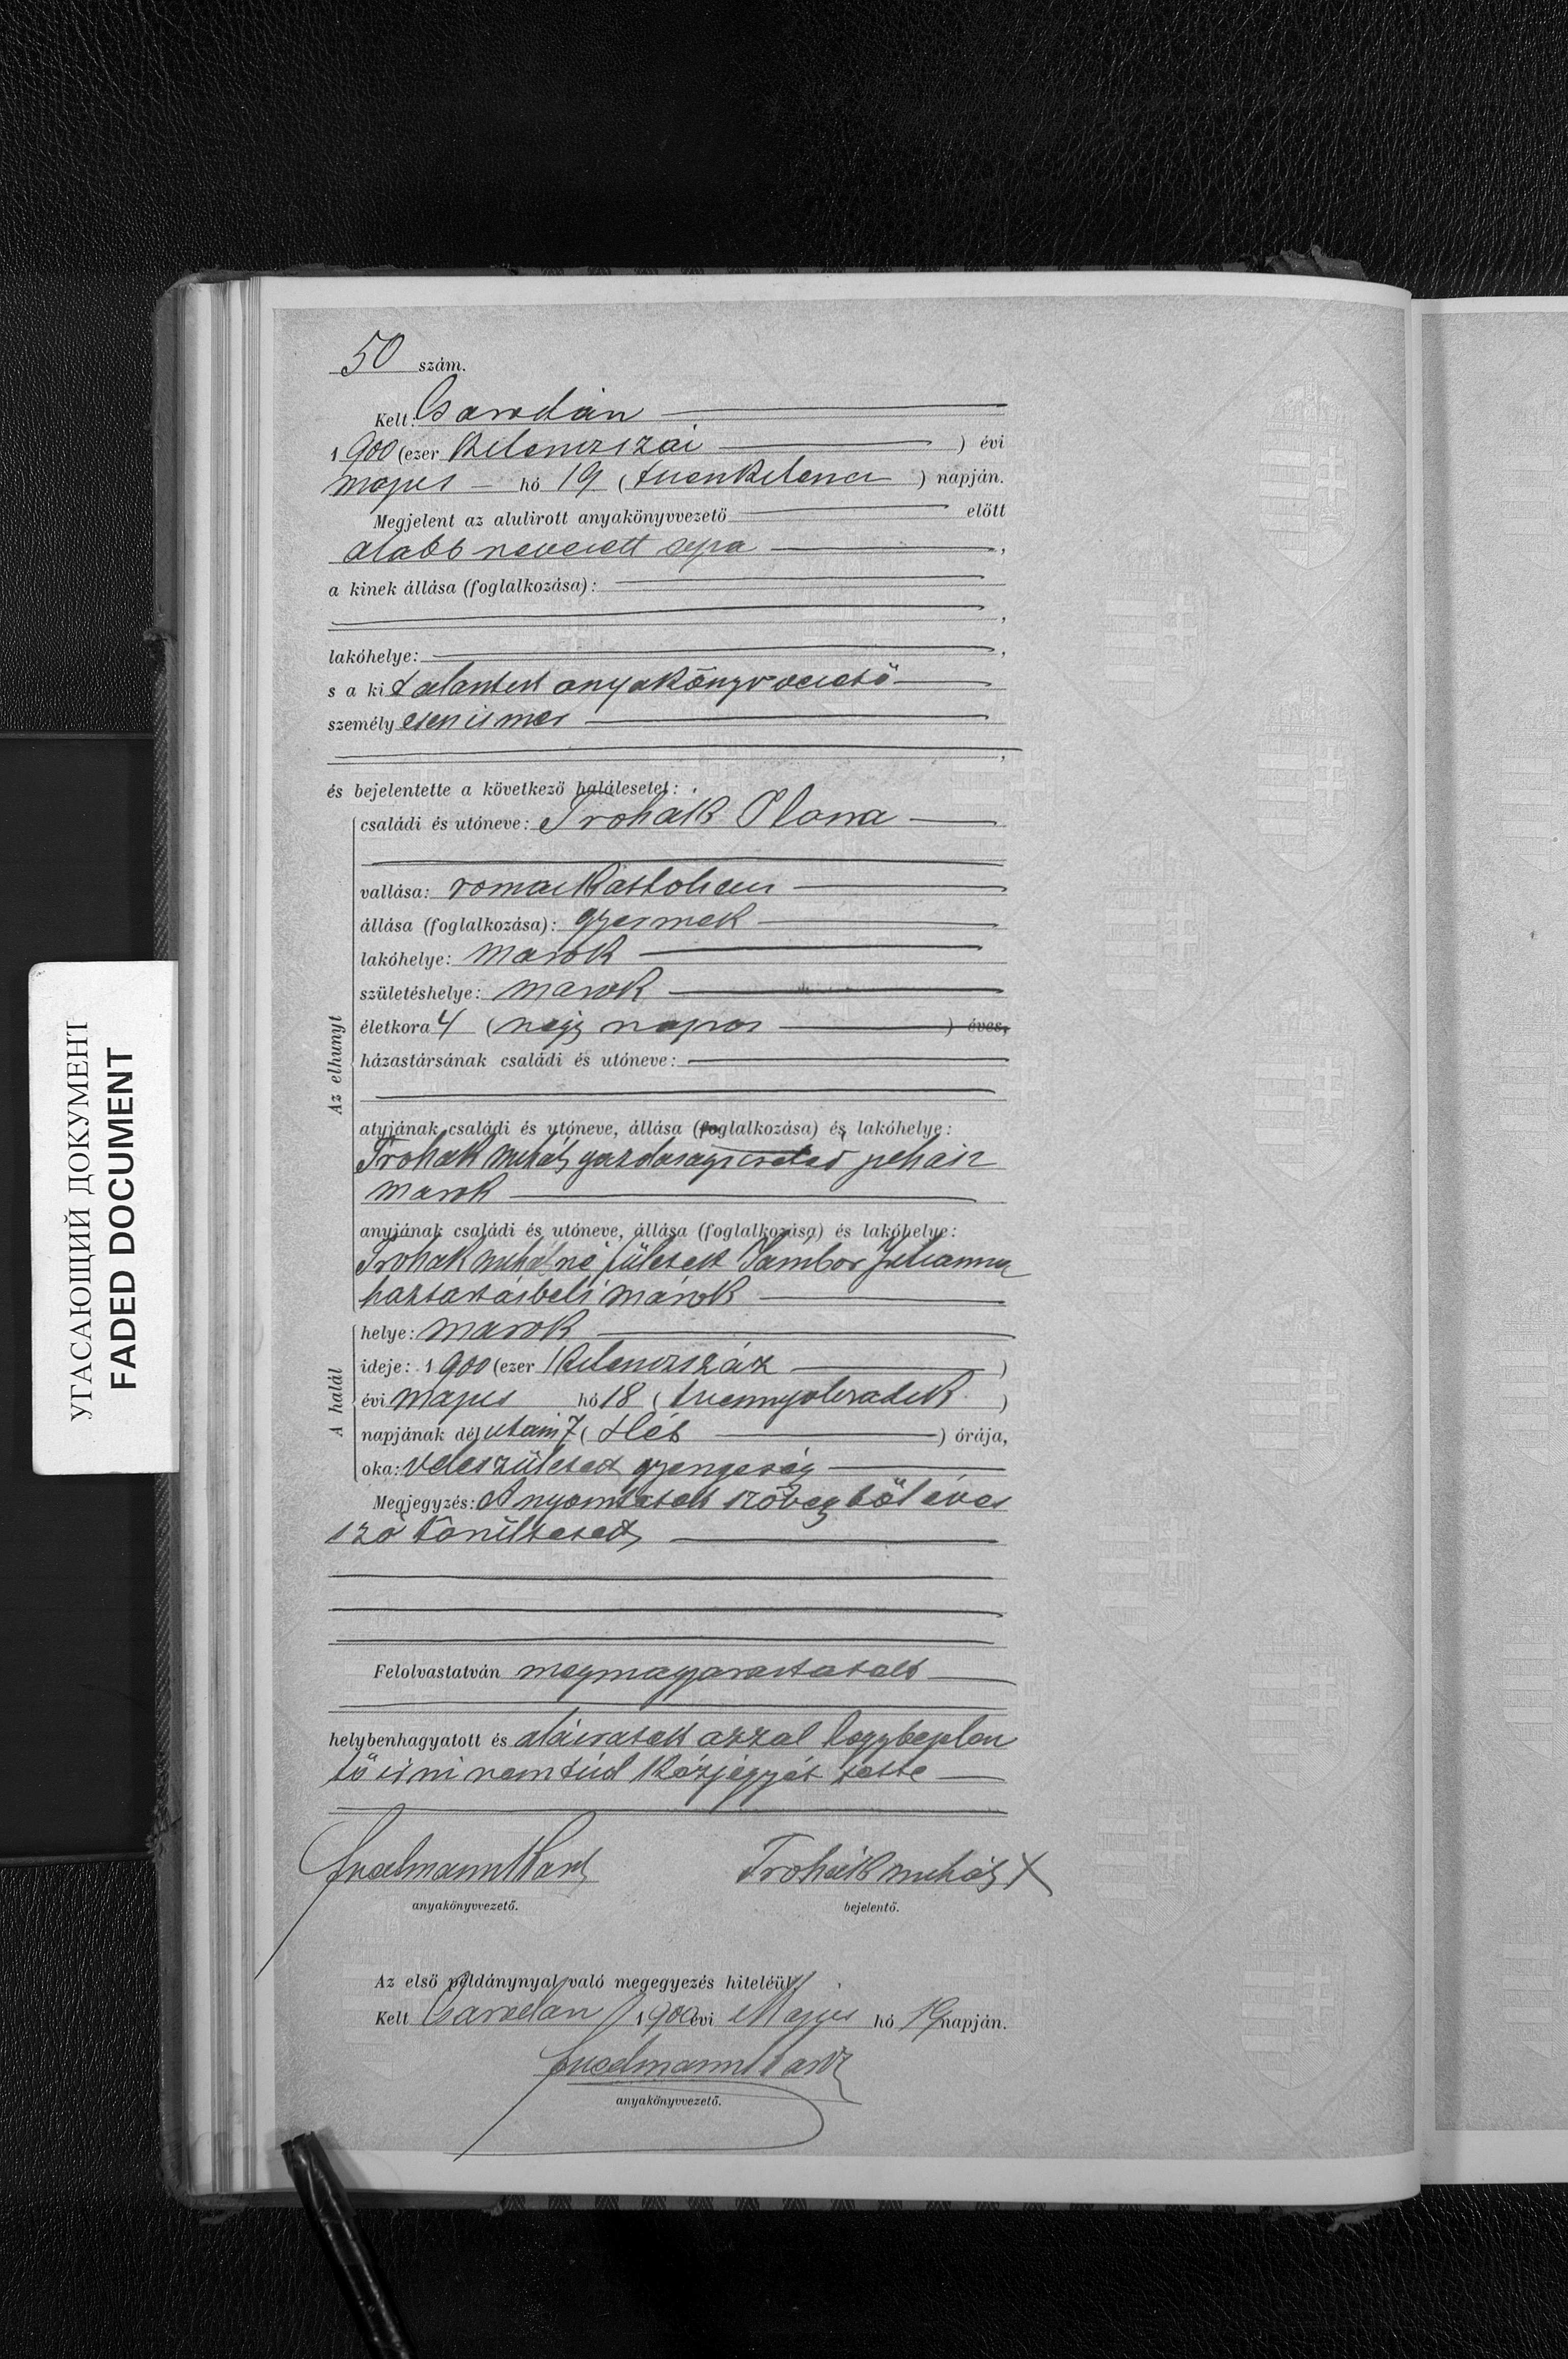 50 szám.
Kelt: Csarodán
1900 (ezer kilenczszáz ) évi
majus hó 19 (tizenkilencz ) napján.
Megjelent az alulirott anyakönyvvezető előtt
alabb nevezett apa ,
a kinek állása (foglalkozása):
,
lakóhelye: ,
s a kit alantirt anyakönyvvezető
személyesen ismer
,
és bejelentette a következő halálesetet:
Az elhunyt
családi és utóneve: Trohak Ilona
vallása: romai katholicus
állása (foglalkozása): gyermek
lakóhelye: Marok
születéshelye: Marok
életkora 4 (négy napos ) éves,
házastársának családi és utóneve:
atyjának családi és utóneve, állása (foglalkozása) és lakóhelye:
Trohak Mihály gazdasági cseléd
Marok
anyjának családi és utóneve, állása (foglalkozása) és lakóhelye:
Trohak Mihályné született Sámbor Julianna
háztartásbeli Márok
A halál
helye: Marok
ideje: 1900 (ezer kilenczszáz )
évi majus hó 18 (tizennyolczadik )
napjának délután 7 (Hét ) órája,
oka: veleszületett gyengeség
Megjegyzés: A nyomtatott szövegből éves
szó töröltetett
Felolvastatván megmagyaráztatott
helybenhagyatott és aláiratott azzal hogy bejelen
tő irni nem tud kézjegyét tette
Trohák Mihály X
anyakönyvvezető. bejelentő.
Az első példánynyal való megegyezés hiteléül.
Kelt Csarodán 1900 évi Majus hó 19 napján.
anyakönyvvezető.
УГАСАЮЩИЙ ДОКУМЕНТ
FADED DOCUMENT